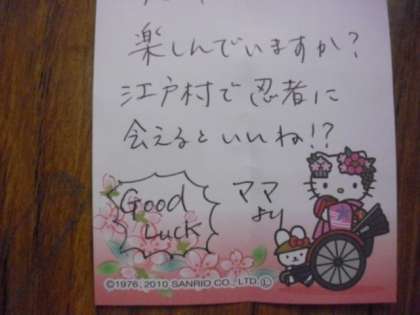 楽しんでいますか?
江戸村で忍者に
会えるといいね!?
Good
Luck
ママ
より
©1976, 2010 SANRIO CO., LTD.